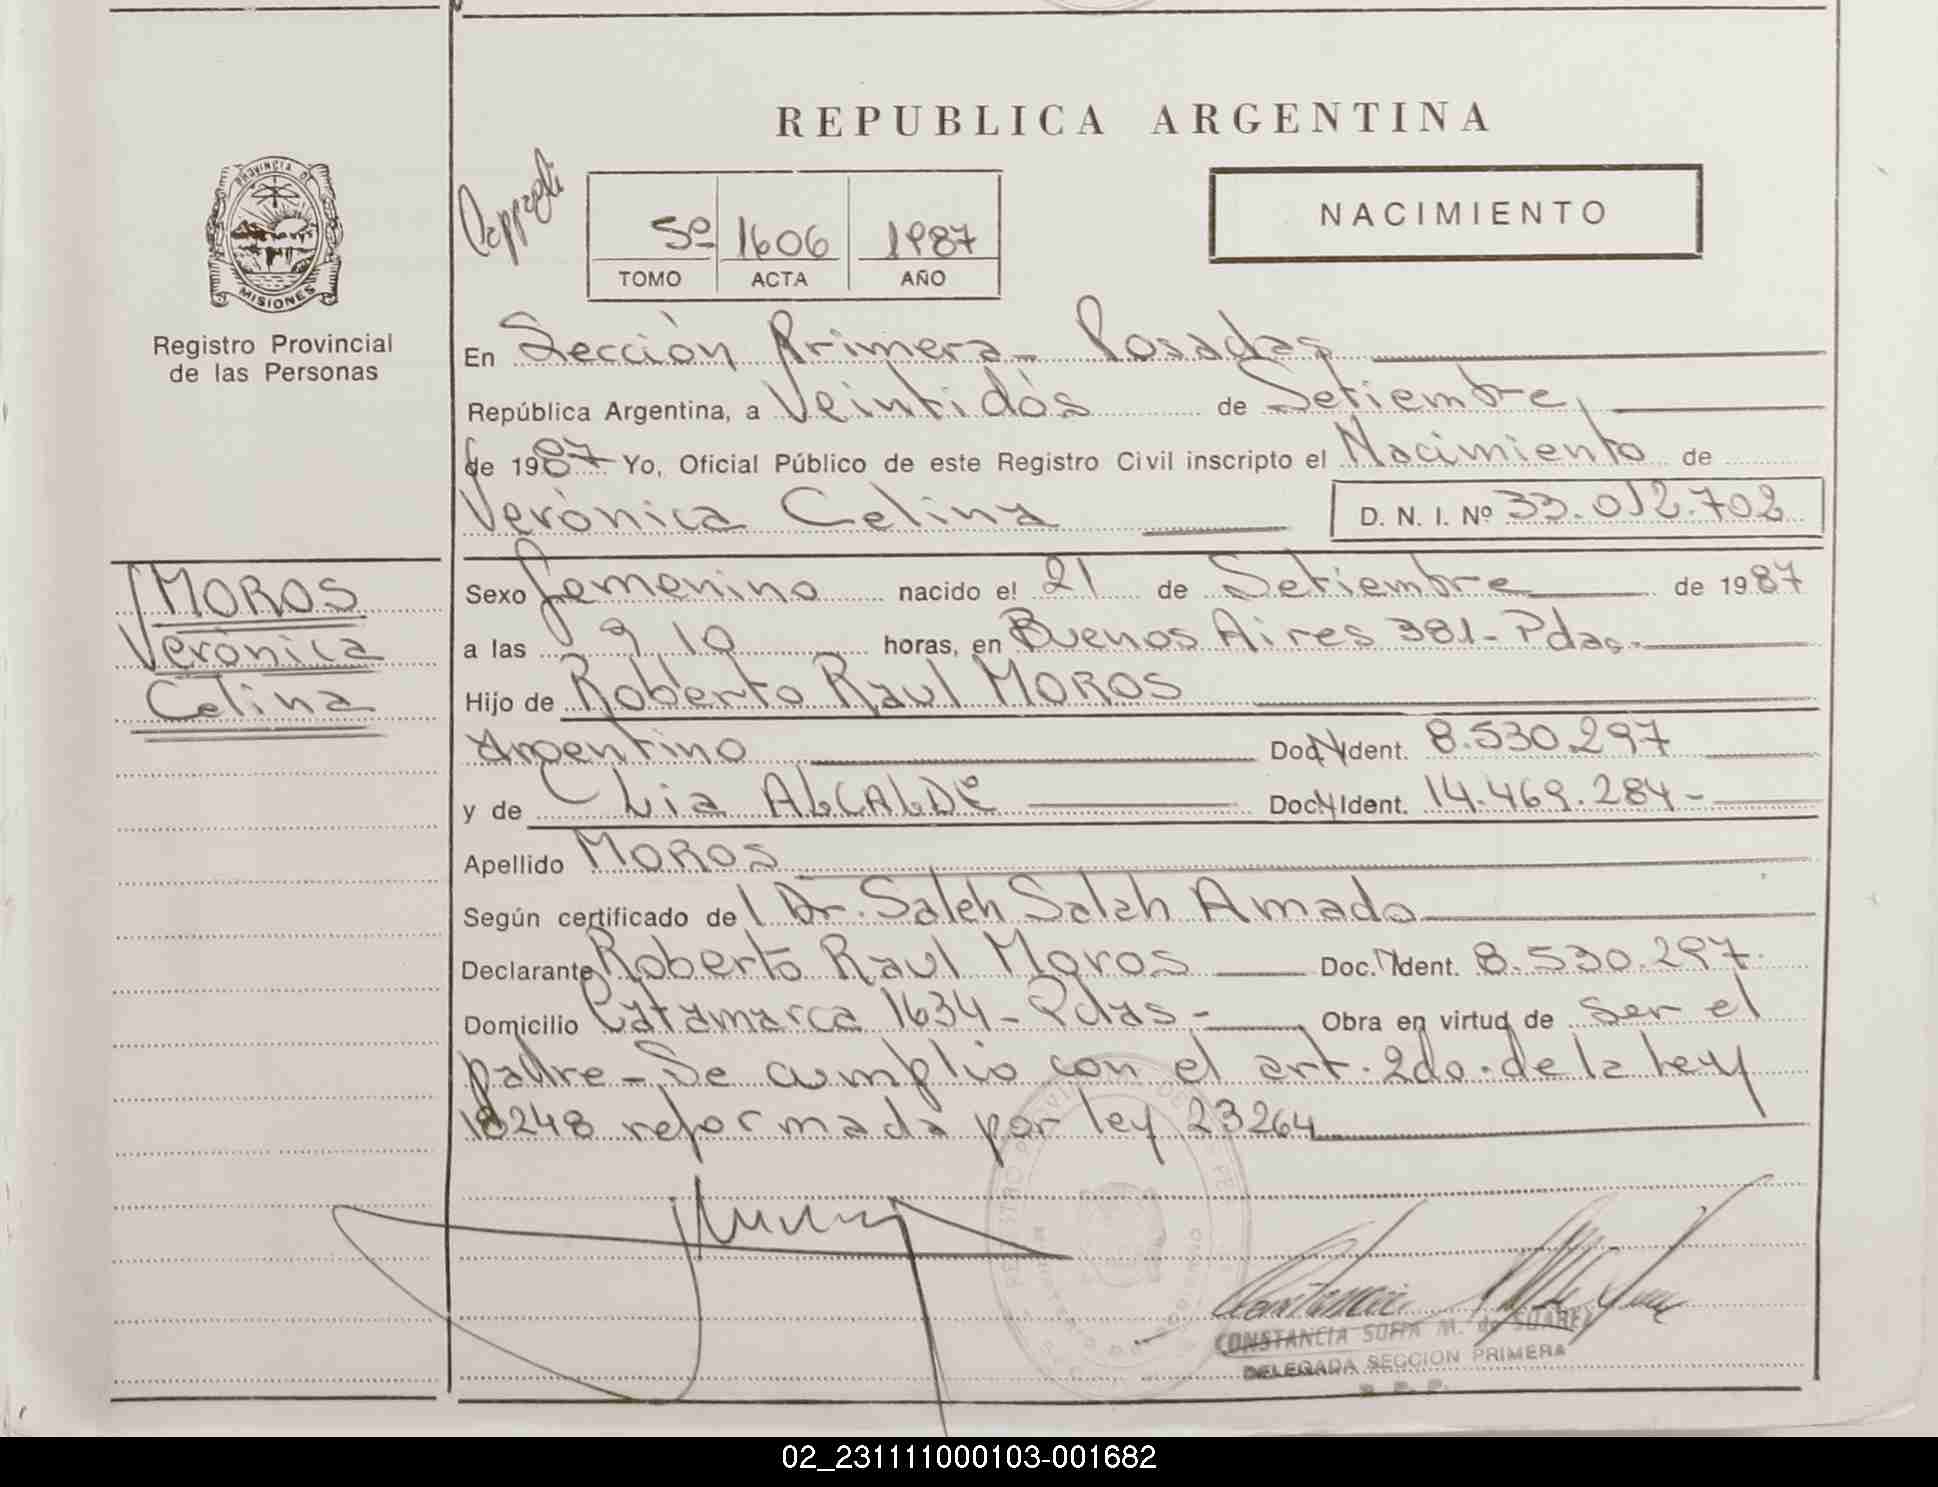 REPUBLICA ARGENTINA
PROVINCIA D
MISIONES
Registro Provincial
de las Personas
5º 1606 1987
TOMO ACTA AÑO
NACIMIENTO
En Sección Primera - Posadas
República Argentina, a Veintidós de Setiembre,
de 1987 Yo, Oficial Público de este Registro Civil inscripto el Nacimiento de
Verónica Celina D. N. I. Nº 33.012.702
MOROS
Verónica
Celina
Sexo femenino nacido el 21 de Setiembre de 1987
a las 9 10 horas, en Buenos Aires 381 - Pdas.
Hijo de Roberto Raul MOROS
Argentino Doc. Ident. 8.530.297
y de Lia ALCALDE Doc. Ident. 14.469.284 -
Apellido MOROS
Según certificado del Dr. Saleh Salah Amado
Declarante Roberto Raul Moros Doc. Ident. 8.530.297.
Domicilio Catamarca 1634 - Pdas - Obra en virtud de ser el
padre - Se cumplio con el art. 2do. de la ley
18248 reformada por ley 23264
CONSTANCIA SOFIA M. de SUAREZ
DELEGADA SECCION PRIMERA
R. P. P.
02_231111000103-001682